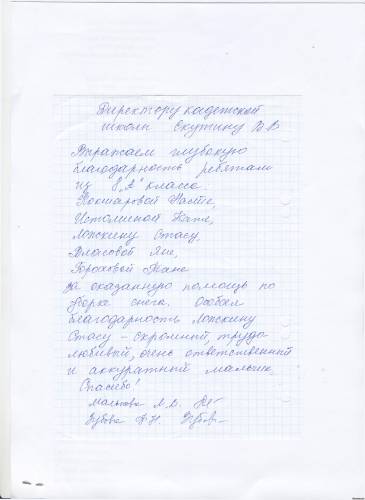 Директору кадетской
школы Екутину В.В
Выражаем глубокую
благодарность ребятам
из 8 „А" класса
Кокшаровой Насте,
Истоминой Кате,
Лопскину Стасу,
Власовой Яне,
Гороховой Тане
за оказанную помощь по
уборке снега. Особая
благодарность Лопскину
Стасу - скромный, трудо
любивый, очень ответственный
и аккуратный мальчик.
Спасибо!
Л.В.
Зубова Зубов